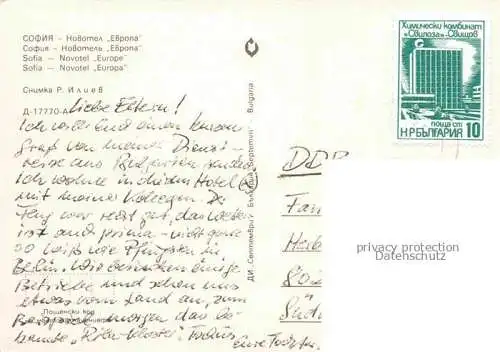 СОФИЯ — Новотел „Европа"
София — Новотель „Европа"
Sofia — Novotel „Europe"
Sofia — Novotel „Europa"
Снимка Р. Илиев
Д-17770-А
Liebe Eltern!
Ich will Euch einen kurzen
Gruß von meiner Dienst-
reise aus Bulgarien senden
Ich wohne in diesem Hotel
mit meinen Kollegen. Der
Flug war sehr gut, das Wetter
ist auch prima - nicht ganz
so heiß wie Pfingsten in
Berlin. Wir besuchen einige
Betriebe und sehen uns
etwas vom Land an, zum
Beispiel morgen das be-
kannte „Rila-Kloster".
Eure Tochter
Пощенски код
ДИ „Септември"
България
Bulgaria
Химически комбинат
„Свилоза"-Свищов
поща ст
НР БЪЛГАРИЯ 10
DDR
Fam
privacy protection
Datenschutz